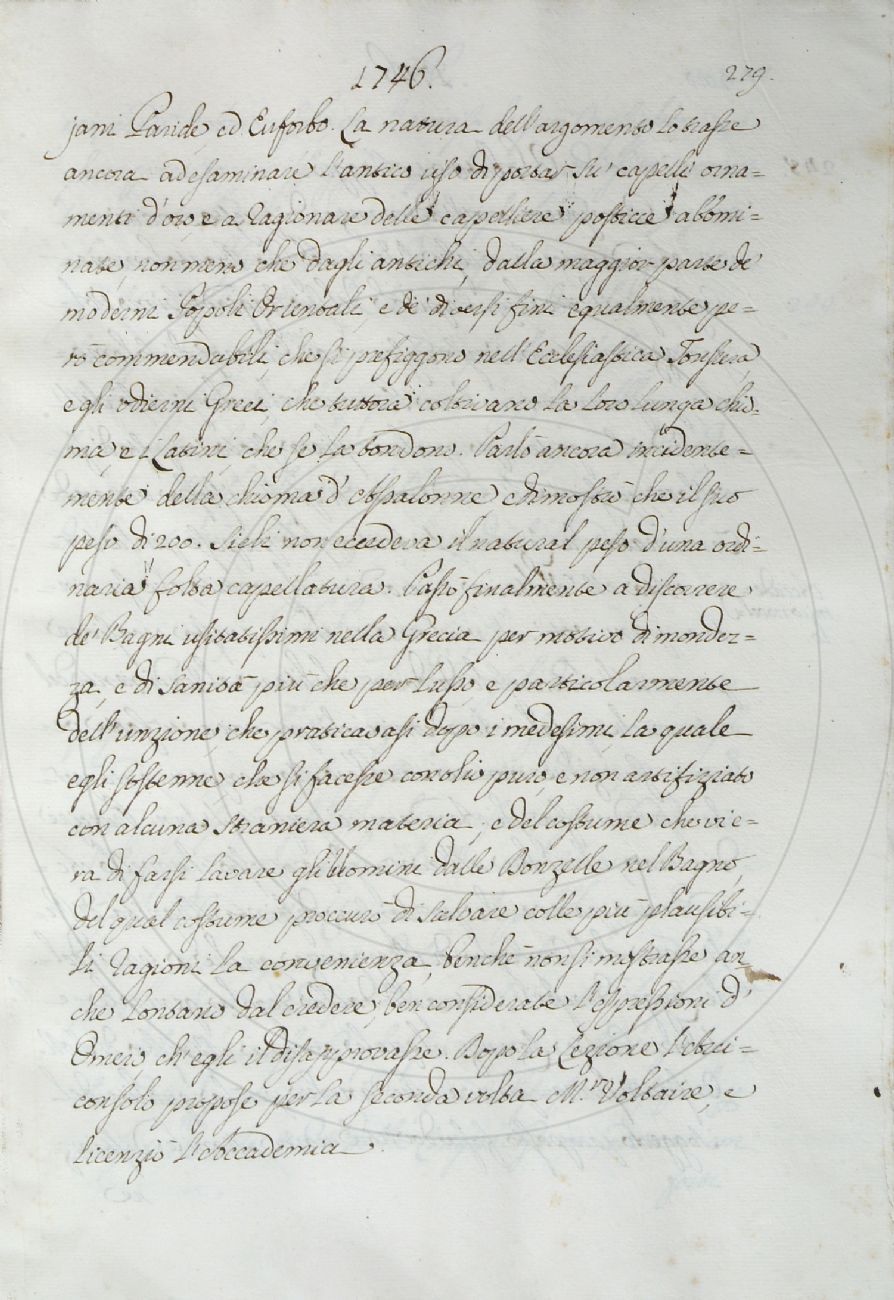 1746.
279.
jani Paride, ed Euforbo. La natura dell'argomento lo trasse
ancora ad esaminare l'antico uso di portar su' capelli orna=
menti d'oro, e a ragionare delle capelliere posticce abbomi=
nate, non meno che dagli antichi, dalla maggior parte de'
moderni Popoli Orientali, e de' diversi fini egualmente pe=
rò commendabili, che si prefiggono nell'Ecclesiastica Tonsura,
e gli odierni Greci, che tuttora coltivano la loro lunga chio=
ma, e i Latini, che se la tondono. Parlò ancora incidente=
mente della chioma d'Assalonne, e dimostrò che il suo
peso di 200. Sicli non eccedeva il natural peso d'una ordi=
naria folta capellatura. Passò finalmente a discorrere
de' Bagni usitatissimi nella Grecia per motivo di mondez=
za, e di sanità più che per lusso, e particolarmente
dell'unzione, che praticavasi dopo i medesimi, la quale
egli sostenne che si facesse con olio puro, e non artifiziato
con alcuna straniera materia, e del costume che vi e=
ra di farsi lavare gli Uomini dalle Donzelle nel Bagno,
del qual costume proccurò di salvare colle più plausibi=
li ragioni la convenienza, benchè non si mostrasse an
che lontano dal credere, ben considerate l'espressioni d'
Omero, ch'egli il disapprovasse. Dopo la Lezione l'Arci=
consolo propose per la seconda volta M.r Voltaire, e
licenziò l'Accademia.